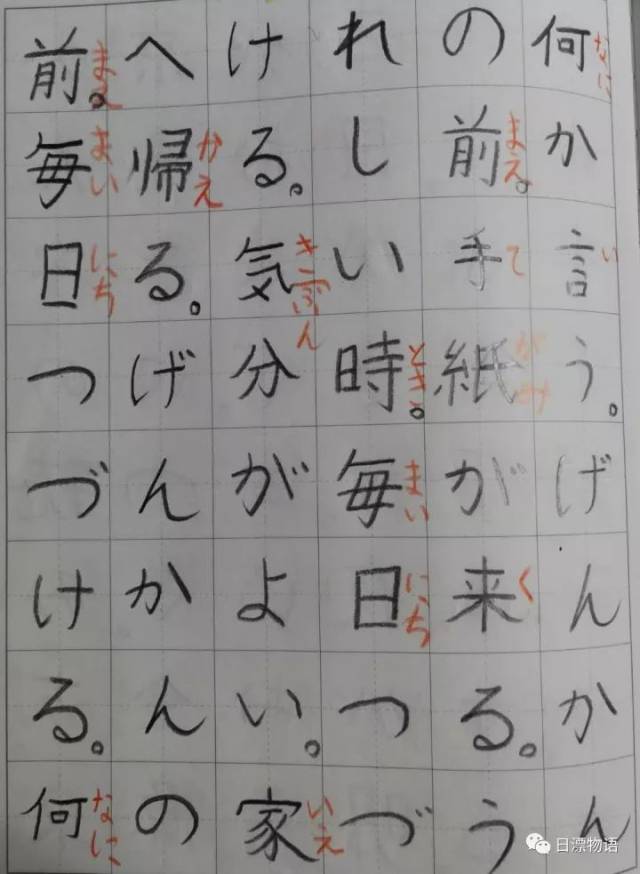 何か言う。げんかん
なに い
の前。手紙が来る。う
まえ て がみ く
れしい時。毎日つづ
とき まい にち
ける。気分がよい。家
きぶん いえ
へ帰る。げんかんの
かえ
前。毎日つづける。何
まえ まい にち なに
日漂物语